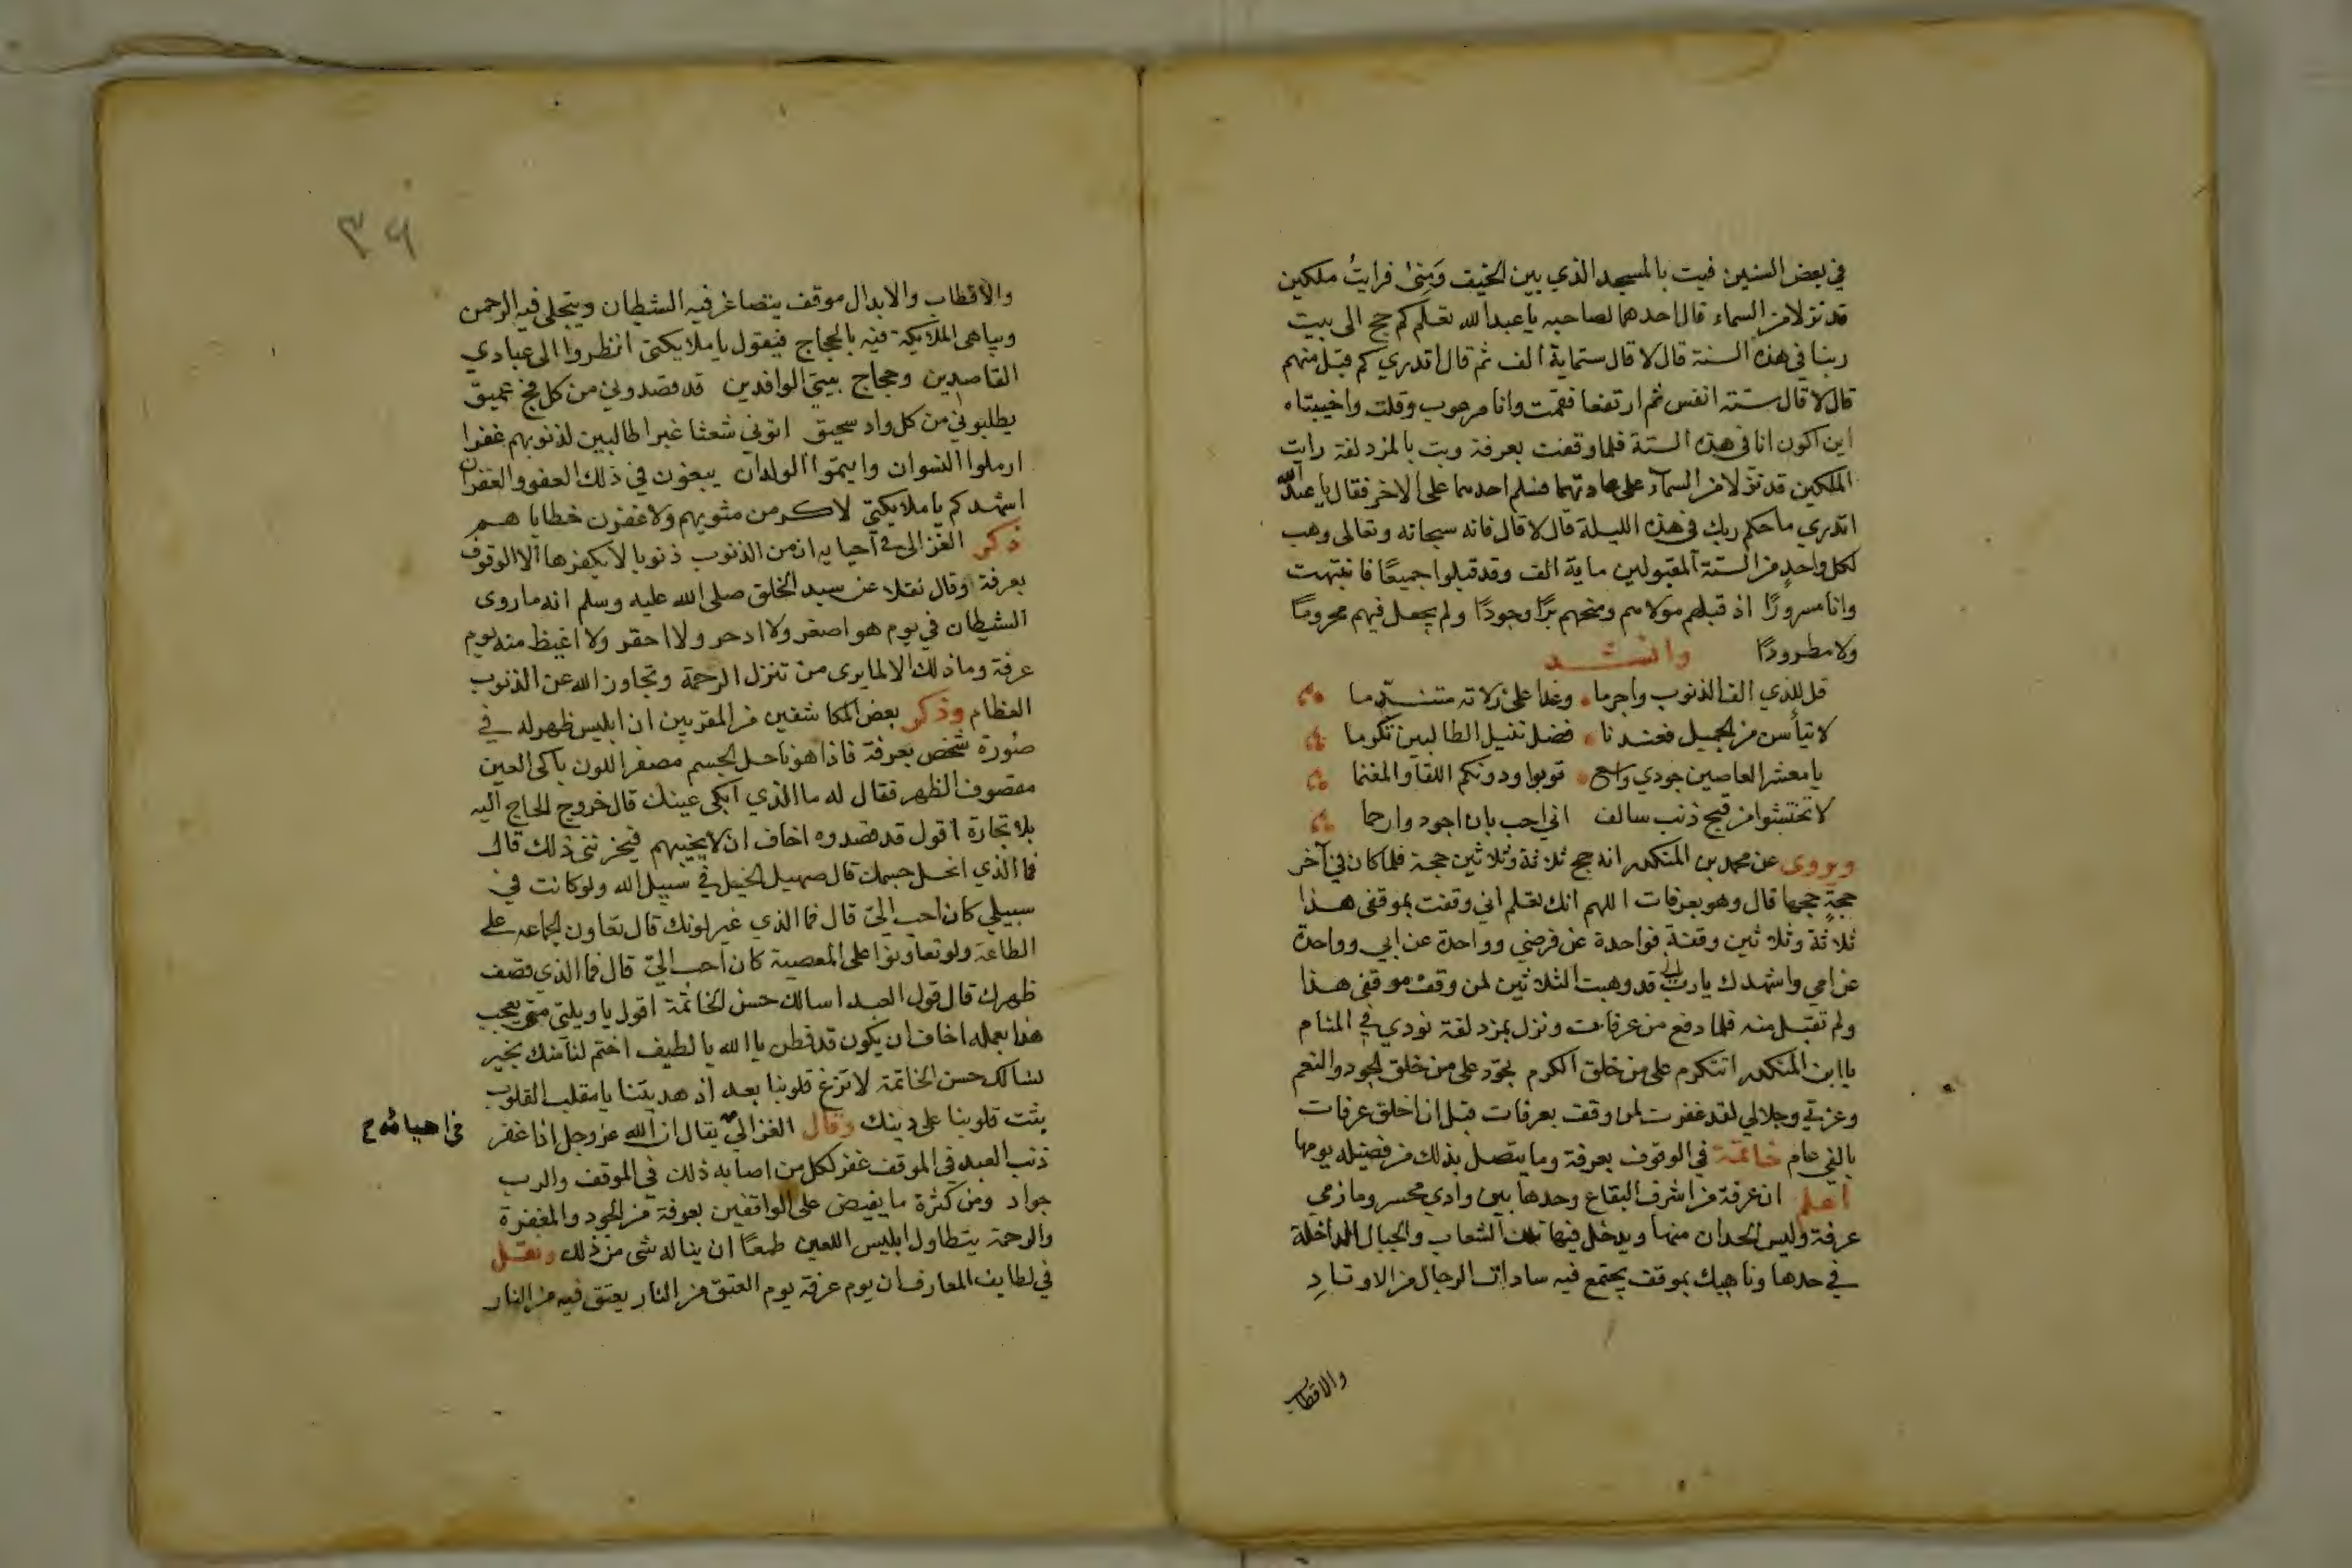 في بعض السنين فبت بالمسجد الذي بين الخيف ومنى فرايت ملكين
قد نزلا من السماء قال احدهما لصاحبه يا عبد الله تعلم كم حج الى بيت
ربنا في هذه السنة قال لا قال ستماية الف ثم قال اتدري كم قبل منهم
قال لا قال ستة انفس ثم ارتفعا فقمت وانا مرعوب وقلت واخيبتاه
اين اكون انا في هذه الستة فلما وقفت بعرفة وبت بالمزدلفة رايت
الملكين قد نزلا من السماء على عادتهما فسلم احدهما على الاخر فقال يا عبد الله
اتدري ما حكم ربك في هذه الليلة قال لا قال فانه سبحانه وتعالى وهب
لكل واحد من الستة المقبولين ماية الف وقد قبلوا جميعًا فانتبهت
وانا مسرورًا اذ قبلهم مولاهم ومنحهم برًا وجودًا ولم يجعل فيهم محرومًا
ولا مطرودًا وانشد
قل للذي الف الذنوب واجرما وغدا على زلاته متندّما
لا تيأسن من الجميل فعندنا فضل تنيل الطالبين تكرما
يا معشر العاصين جودي واسع توبوا ودونكم اللقا والمغنما
لا تختشوا من قبح ذنب سالف اني احب بان اجود وارحما
ويروى عن محمد بن المنكدر انه حج ثلاثة وثلاثين حجة فلما كان في آخر
حجةٍ حجها قال وهو بعرفات اللهم انك تعلم اني وقفت بموقفي هذا
ثلاثة وثلاثين وقفة فواحدة عن فرضي وواحدة عن ابي وواحدة
عن امي واشهدك يا رب اني قد وهبت الثلاثين لمن وقف موقفي هذا
ولم تقبل منه فلما دفع من عرفات ونزل بمزدلفة نودي في المنام
يا ابن المنكدر اتتكرم على من خلق الكرم تجود على من خلق الجود والنعم
وعزتي وجلالي لقد غفرت لمن وقف بعرفات قبل ان اخلق عرفات
بالفي عام خاتمة في الوقوف بعرفة وما يتصل بذلك من فضيله يومها
اعلم ان عرفة من اشرف البقاع وحدها بين وادي محسر ومازمي
عرفة وليس الحدان منها ويدخل فيها تلك الشعاب والجبال الداخلة
في حدها وناهيك بموقف يجتمع فيه سادات الرجال من الاوتادِ
والاقطاب
٣٦
والاقطاب والابدال موقف يتصاغر فيه الشيطان ويتجلى فيه الرحمن
ويباهى الملايكة فيه بالحجاج فيقول يا ملايكتي انظروا الى عبادي
القاصدين وحجاج بيتي الوافدين قد قصدوني من كل فج عميق
يطلبوني من كل واد سحيق اتوني شعثا غبرا طالبين لذنوبهم غفرا
ارملوا النسوان وايتموا الولدان يبغون في ذلك العفو والغفران
اشهدكم يا ملايكتي لاكرمن مثويهم ولاغفرن خطاياهم
ذكر الغزالي في احيايه ان من الذنوب ذنوبا لا يكفرها الا الوقوف
بعرفة وقال نقلا عن سيد الخلق صلى الله عليه وسلم انه ما روى
الشيطان في يوم هو اصغر ولا ادحر ولا احقر ولا اغيظ منه يوم
عرفة وما ذلك الا لما يرى من تنزل الرحمة وتجاوز الله عن الذنوب
العظام وذكر بعض المكاشفين من المقربين ان ابليس ظهر له في
صورة شخص بعرفة فاذا هو ناحل الجسم مصفر اللون باكى العين
مقصوف الظهر فقال له ما الذي ابكى عينك قال خروج الحاج اليه
بلا تجارة اقول قد قصدوه اخاف ان لا يخيبهم فيحزنني ذلك قال
فما الذي انحل جسمك قال صهيل الخيل في سبيل الله ولو كانت في
سبيلي كان احب الي قال فما الذي غير لونك قال تعاون الجماعه على
الطاعة ولو تعاونوا على المعصية كان احب الي قال فما الذي قصف
ظهرك قال قول العبد اسالك حسن الخاتمة اقول يا ويلتى متى يعجب
هذا بعمله اخاف ان يكون قد فطن يا الله يا لطيف اختم لنا منك بخير
نسالك حسن الخاتمة لا تزغ قلوبنا بعد اذ هديتنا يا مقلب القلوب
ثبت قلوبنا على دينك وقال الغزالي يقال ان الله عز وجل اذا غفر
في احيائه
ذنب العبد في الموقف غفر لكل من اصابه ذلك في الموقف والرب
جواد ومن كثرة ما يفيض على الواقفين بعرفة من الجود والمغفرة
والرحمة يتطاول ابليس اللعين طمعًا ان يناله شى من ذلك ونقل
في لطايف المعارف ان يوم عرفة يوم العتق من النار يعتق فيه من النار